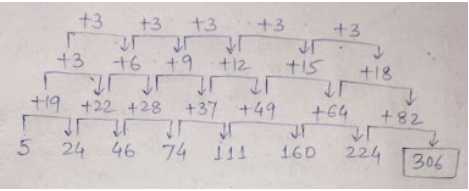 +3 +3 +3 +3 +3
+3 +6 +9 +12 +15 +18
+19 +22 +28 +37 +49 +64 +82
5 24 46 74 111 160 224 306